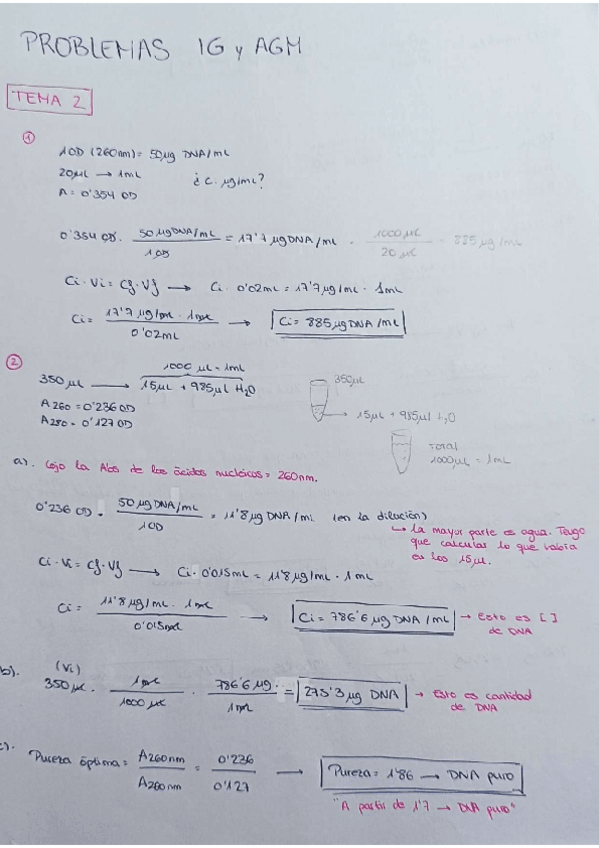 PROBLEMAS IG y AGM
TEMA 2
①
1OD (260nm) = 50µg DNA/mL
20µL → 1mL
¿C. µg/mL?
A = 0'354 OD
0'354 OD · 50 µgDNA/mL / 1OD = 17'7 µgDNA/mL · 1000µL / 20 µL = 885µg/mL
Ci · Vi = Cf · Vf → Ci · 0'02mL = 17'7µg/mL · 1mL
Ci = 17'7 µg/mL · 1mL / 0'02mL → Ci = 885µgDNA/mL
②
1000 µL = 1mL
350µL → 15µL + 985µL H2O
A260 = 0'236 OD
A280 = 0'127 OD
350µL
15µL + 985µL H2O
TOTAL
1000µL = 1mL
a). Cojo la Abs de los ácidos nucleicos = 260nm.
0'236 OD · 50µg DNA/mL / 1OD = 11'8µg DNA/mL (en la dilución)
↳ La mayor parte es agua. Tengo
que calcular lo que valdría
en los 15µL.
Ci · Vi = Cf · Vf → Ci · 0'015mL = 11'8µg/mL · 1mL
Ci = 11'8µg/mL · 1mL / 0'015mL → Ci = 786'6µg DNA/mL → Esto es [ ]
de DNA
b). (Vi)
350µL · 1mL / 1000µL · 786'6 µg / 1mL = 275'3µg DNA → Esto es cantidad
de DNA
c).
Pureza óptima = A260nm / A280nm = 0'236 / 0'127 → Pureza = 1'86 → DNA puro
"A partir de 1'7 → DNA puro"